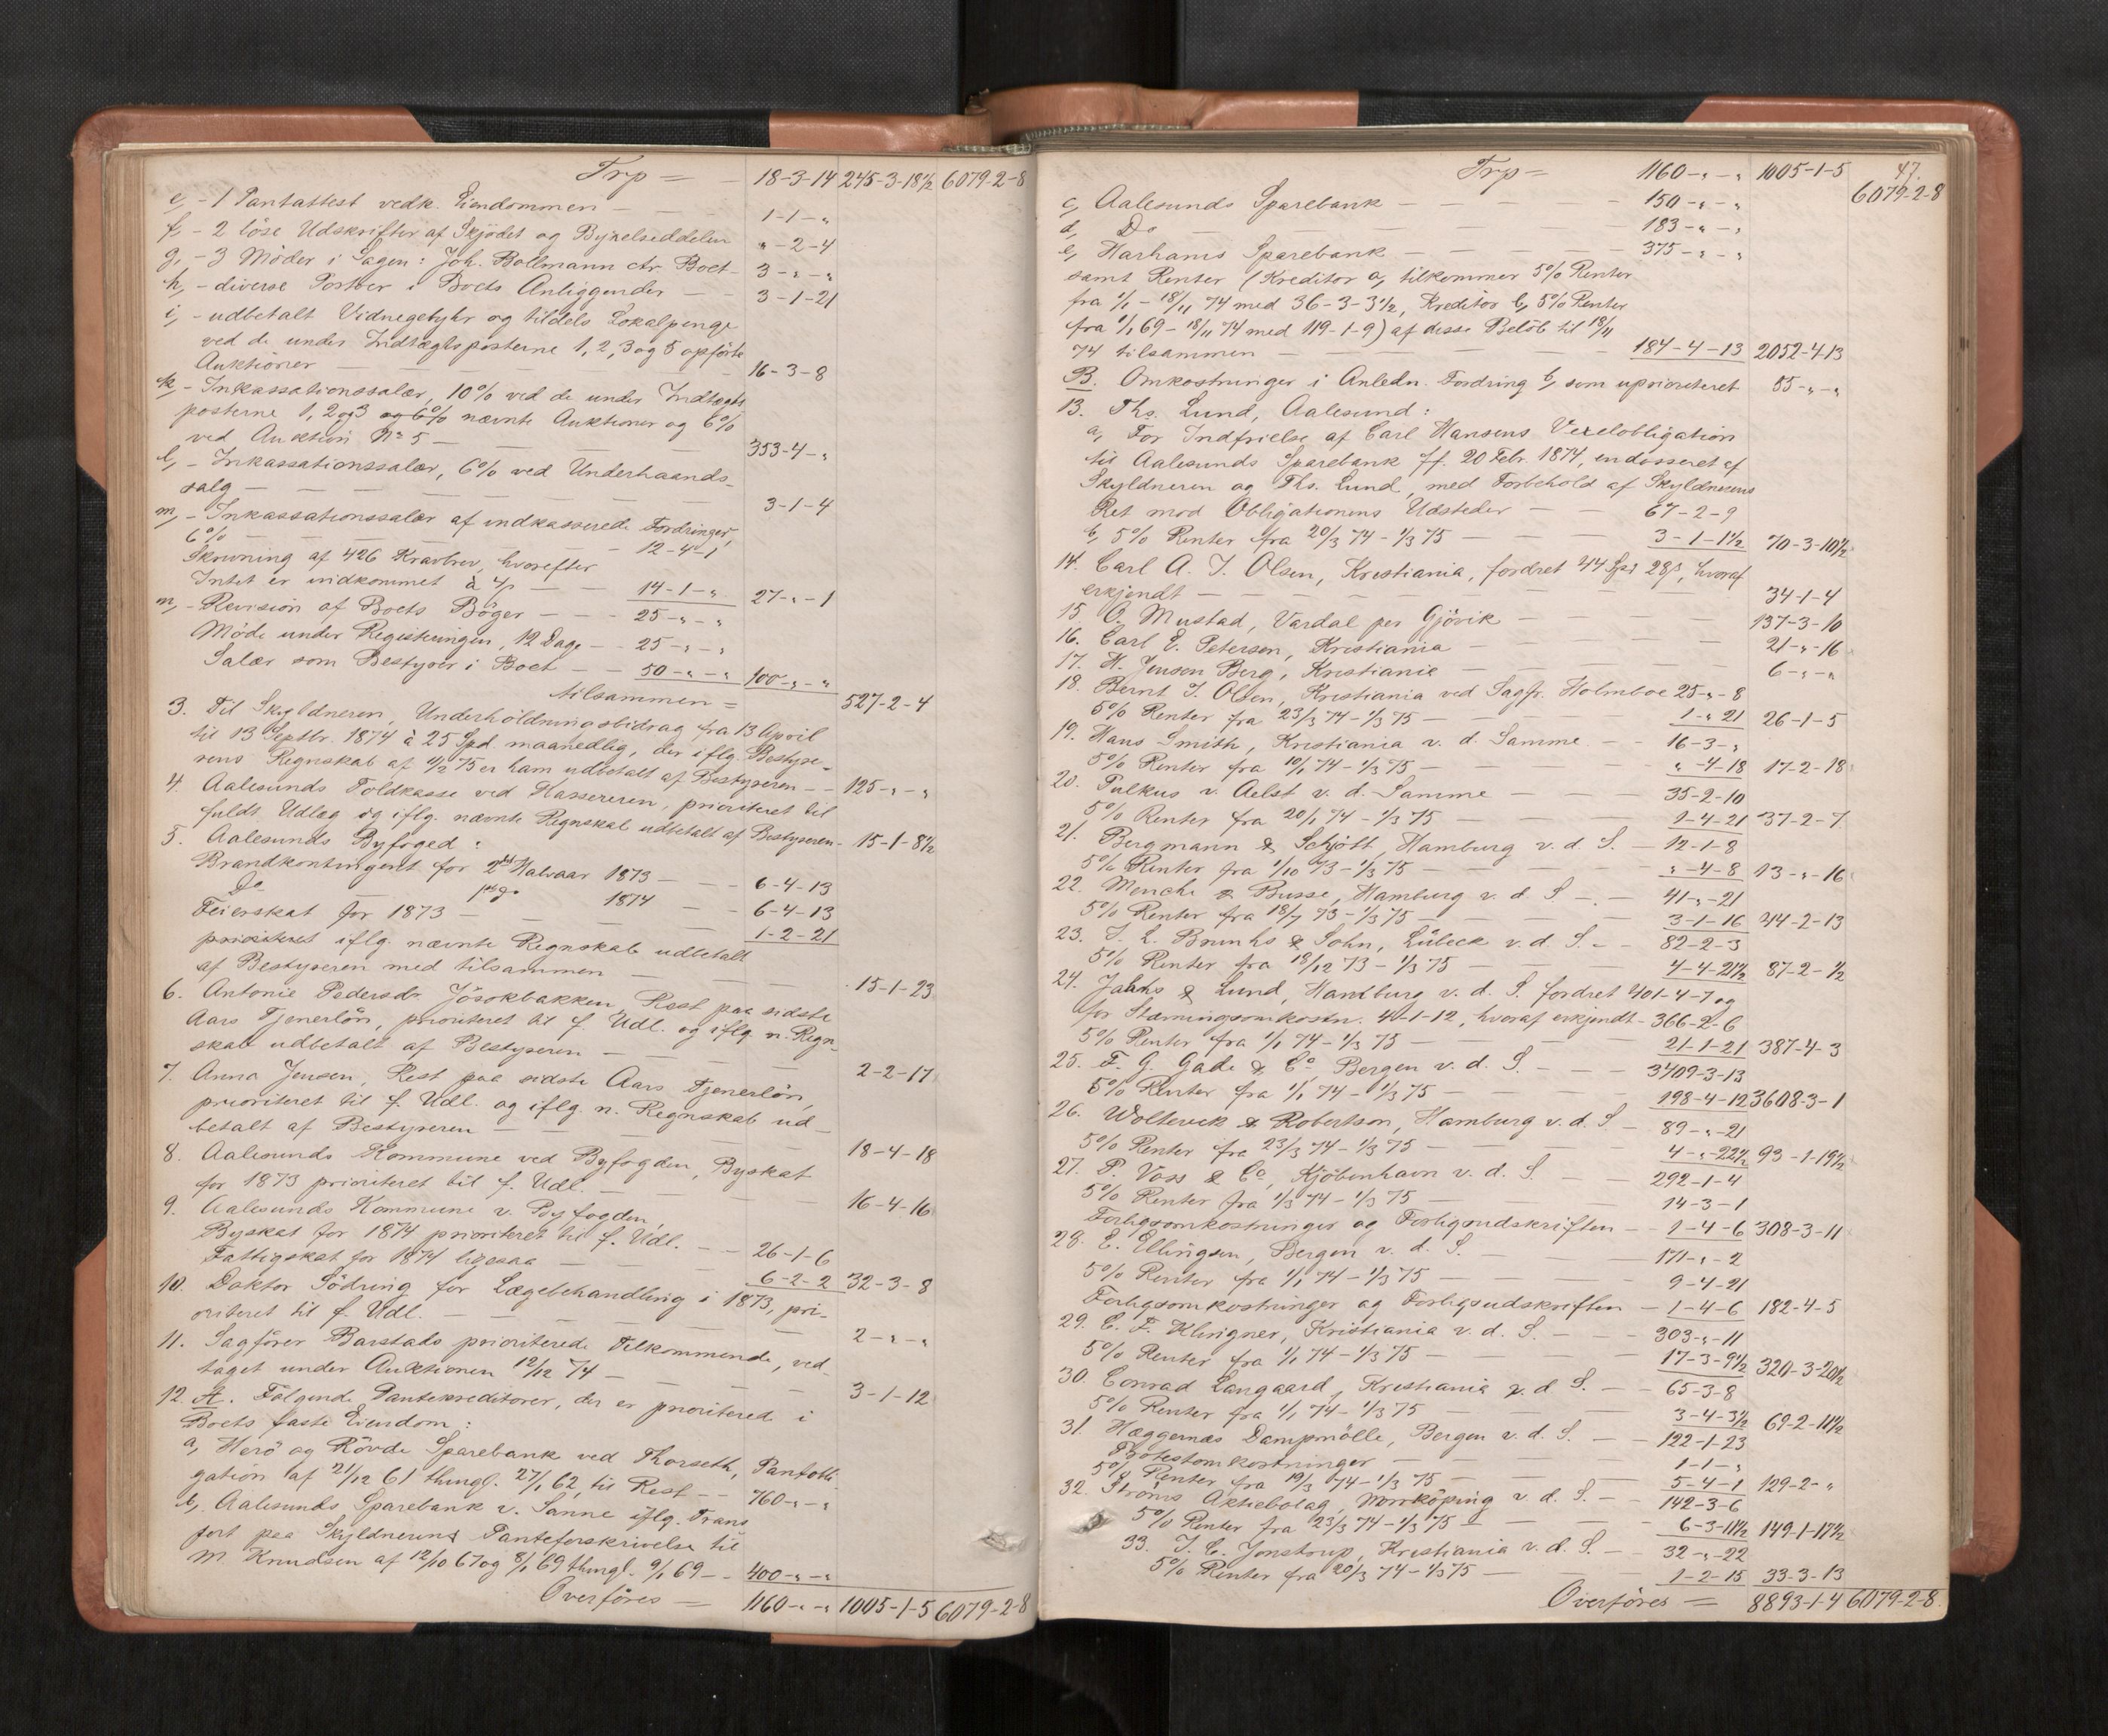 Trp = - 18-3-14 245-3-18½ 6079-2-8
e, - 1 Pantattest vedk. Eiendommen - - - 1-1-"
f, - 2 löse Udskrifter af Skjödet og Bÿxelseddelen "-2-4
g, - 3 Möder i Sagen: Joh. Bollmann ctr. Boet - 3-"-"
h, - diverse Portoer i Boets Anliggender - - 3-1-21
i, - udbetalt Vidnegebyhr og tildels Lokalpenge
ved de under Indtægtsposterne 1, 2, 3 og 5 opförte
Auktioner - - - - 16-3-8
k, - Inkassationssalær, 10% ved de under Indtægts
posterne 1, 2 og 3 og 6% nævnte Auktioner og 6%
ved Auktion No 5 - - - 353-4-"
l, - Inkassationssalær, 6% ved Underhaands-
salg - - - - - 3-1-4
m, - Inkassationssalær af indkasserede Fordringer,
6% - - - - 12-4-1
Skrivning af 426 Kravbrev, hvorefter
Intet er indkommet à 4/β - - 14-1-" 27-"-1
n, - Revision af Boets Böger - - - 25-"-"
Möde under Registeringen, 12 Dage - - 25-"-"
Salær som Bestyrer i Boet - - 50-"-" 100-"-"
tilsammen = 527-2-4
3. Til Skyldneren, Underholdningsbidrag fra 13 April
til 13 Septbr. 1874 à 25 Spd. maanedlig, der iflg. Bestyre-
rens Regnskab af 11/2 75 er ham udbetalt af Bestyreren - - 125-"-"
4. Aalesunds Toldkasse ved Kassereren, prioriteret til
fuldt Udlæg og iflg. nævnte Regnskab udbetalt af Bestyreren - 15-1-8½
5. Aalesunds Byfoged:
Brandkontingent for 2det Halvaar 1873 - - - 6-4-13
Do 1ste Do 1874 - - 6-4-13
Feierskat for 1873 - - - - 1-2-21
prioriteret iflg. nævnte Regnskab udbetalt
af Bestyreren med tilsammen - - - 15-1-23
6. Antonie Pedersdr. Jösokbakken, Rest paa sidste
Aars Tjenerlön, prioriteret til f. Udl. og iflg. n. Regn-
skab udbetalt af Bestyreren - - - 2-2-17
7. Anna Jensen, Rest paa sidste Aars Tjenerlön,
prioriteret til f. Udl. og iflg. n. Regnskab ud-
betalt af Bestyreren - - - - 18-4-18
8. Aalesunds Kommune ved Byfogden, Byskat
for 1873 prioriteret til f. Udl. - - - 16-4-16
9. Aalesunds Kommune v. Byfogden,
Byskat for 1874 prioriteret til f. Udl. - - 26-1-6
Fattigskat for 1874 ligesaa - - - 6-2-2 32-3-8
10. Doktor Södring for Lægebehandling i 1873, pri-
oriteret til f. Udl. - - - - - 2-"-"
11. Sagförer Barstads prioriterede Tilkommende, ved-
taget under Auktionen 12/12 74 - - - - 3-1-12
12. A. Fölgende Pantekreditorer, der er prioriterede i
Boets faste Eiendom:
a, Herö og Rövde Sparebank ved Thorseth, Pantobli-
gation af 21/12 61 thingl. 27/1 62, til Rest - - 760-"-"
b, Aalesunds Sparebank v. Sanne iflg. Trans
port paa Skyldnerens Panteforskrivelse til
M. Knudsen af 12/10 67 og 8/1 69 thingl. 9/1 69 - - 400-"-"
Overföres = 1160-"-" 1005-1-5 6079-2-8
47.
Trp = 1160-"-" 1005-1-5 6079-2-8
c, Aalesunds Sparebank - - - - - 150-"-"
d, Do - - - - 183-"-"
e, Harhams Sparebank - - - - 375-"-"
samt Renter (Kreditor a, tilkommer 5% Renter
fra 1/1 - 18/11 74 med 36-3-3½, Kreditor b, 5% Renter
fra 1/1 69 - 18/11 74 med 119-1-9) af disse Belöb til 18/11
74 tilsammen - - - - - 184-4-13 2052-4-13
B. Omkostninger i Anledn. Fordring b, som uprioriteret 55-"-"
13. Ths. Lund, Aalesund:
a, For Indfrielse af Carl Hansens Vexelobligation
til Aalesunds Sparebank ff. 20 Febr. 1874, endosseret af
Skyldneren og Ths. Lund, med Forbehold af Skyldnerens
Ret mod Obligationens Udsteder - - 67-2-9
b, 5% Renter fra 20/3 74 - 1/3 75 - - - 3-1-1½ 70-3-10½
14. Carl A. J. Olsen, Kristiania, fordret 44 Spd 28β, hvoraf
erkjendt - - - - - - - 34-1-4
15. O. Mustad, Vardal per Gjövik - - - - 137-3-10
16. Carl E. Petersen, Kristiania - - - - 21-"-16
17. H. Jensen Berg, Kristiania - - - - 6-"-"
18. Bernt J. Olsen, Kristiania ved Sagfr. Holmboe 25-"-8
5% Renter fra 23/3 74 - 1/3 75 - - - - 1-"-21 26-1-5
19. Hans Smith, Kristiania v. d. Samme - - 16-3-"
5% Renter fra 10/1 74 - 1/3 75 - - - - "-4-18 17-2-18
20. Pulkus v. Aelst v. d. Samme - - - 35-2-10
5% Renter fra 20/1 74 - 1/3 75 - - - 1-4-21 37-2-7
21. Bergmann & Schjött, Hamburg v. d. S. - 12-1-8
5% Renter fra 1/10 73 - 1/3 75 - - - - "-4-8 13-"-16
22. Menche & Busse, Hamburg v. d. S - - - 41-"-21
5% Renter fra 18/7 73 - 1/3 75 - - - 3-1-16 44-2-13
23. J. L. Brunhs & Sohn, Lübeck v. d. S. - - 82-2-3
5% Renter fra 18/12 73 - 1/3 75 - - - 4-4-21½ 87-2-½
24. Jahns & Lund, Hamburg v. d. S. fordret 401-4-7 og
for Stevningsomkostn. 4-1-12, hvoraf erkjendt - 366-2-6
5% Renter fra 1/1 74 - 1/3 75 - - - - 21-1-21 387-4-3
25. F. G. Gade & Co, Bergen v. d. S. - - - 3409-3-13
5% Renter fra 1/1 74 - 1/3 75 - - - - 198-4-12 3608-3-1
26. Woltereck & Robertson, Hamburg v. d. S - 89-"-21
5% Renter fra 23/3 74 - 1/3 75 - - - 4-"-22½ 93-1-19½
27. P. Voss & Co, Kjöbenhavn v. d. S. - - - 292-1-4
5% Renter fra 1/3 74 - 1/3 75 - - - 14-3-1
Forligsomkostninger og Forligsudskriften - - 1-4-6 308-3-11
28. E. Ellingsen, Bergen v. d. S. - - - 171-"-2
5% Renter fra 1/1 74 - 1/3 75 - - - 9-4-21
Forligsomkostninger og Forligsudskriften - 1-4-6 182-4-5
29. C. F. Klingner, Kristiania v. d. S. - - - 303-"-11
5% Renter fra 1/1 74 - 1/3 75 - - - 17-3-9½ 320-3-20½
30. Conrad Langaard, Kristiania v. d. S. - - 65-3-8
5% Renter fra 1/1 74 - 1/3 75 - - - 3-4-3½ 69-2-11½
31. Hæggernæs Dampmölle, Bergen v. d. S. - - 122-1-23
Protestomkostninger - - - - 1-1-"
5% Renter fra 19/3 74 - 1/3 75 - - - 5-4-1 129-2-"
32. Ströms Aktiebolag, Norrköping v. d. S. - - 142-3-6
5% Renter fra 23/3 74 - 1/3 75 - - - 6-3-11½ 149-1-17½
33. J. C. Jonstrup, Kristiania v. d. S. - - 32-"-22
5% Renter fra 20/3 74 - 1/3 75 - - - 1-2-15 33-3-13
Overföres = 8893-1-4 6079-2-8